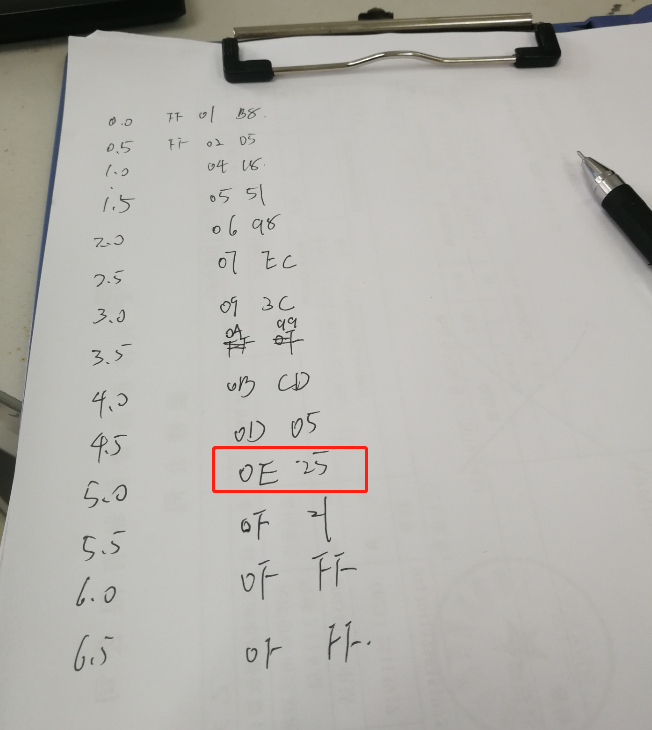 0.0 FF 01 B8.
0.5 FF 02 D5
1.0 04
1.5 05 51
2.0 06 98
2.5 07 EC
3.0 09 3C
3.5 0A 99
4.0 0B CD
4.5 0D 05
5.0 0E 25
5.5 0F 21
6.0 0F FF
6.5 0F FF.